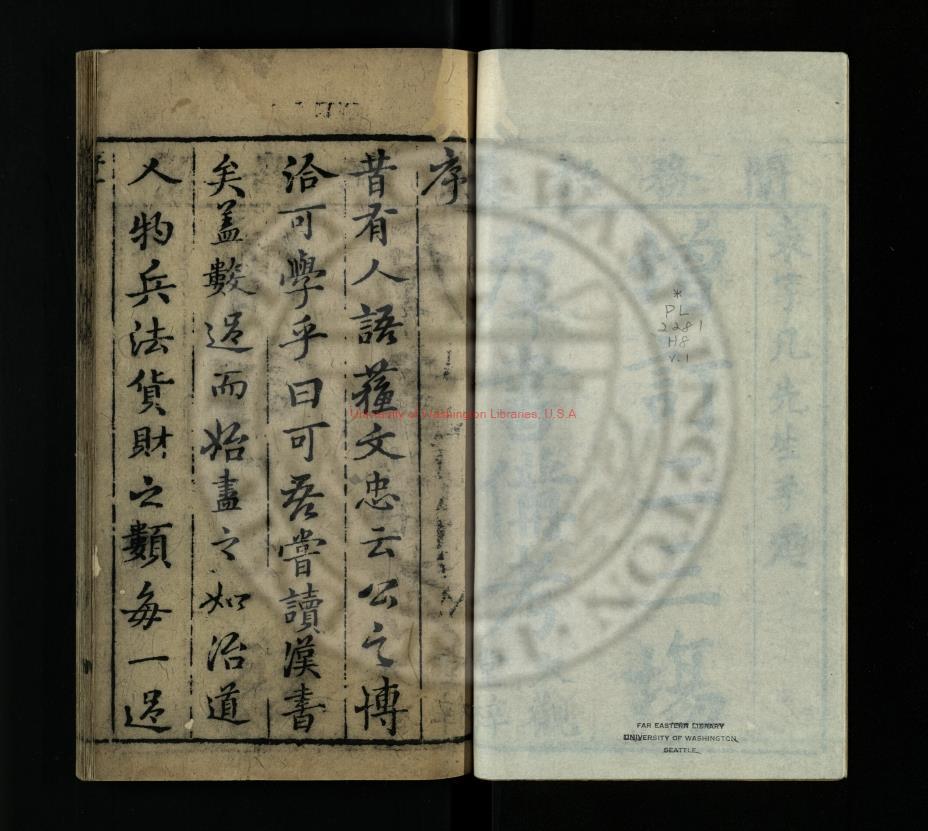 序
昔有人語蘓文忠云公之博
洽可學乎曰可吾嘗讀漢書
矣盖數過而始盡之如治道
人物兵法貨財之類每一過
*
PL
2281
H8
v.1
University of Washington Libraries, U.S.A
FAR EASTERN LIBRARY
UNIVERSITY OF WASHINGTON
SEATTLE